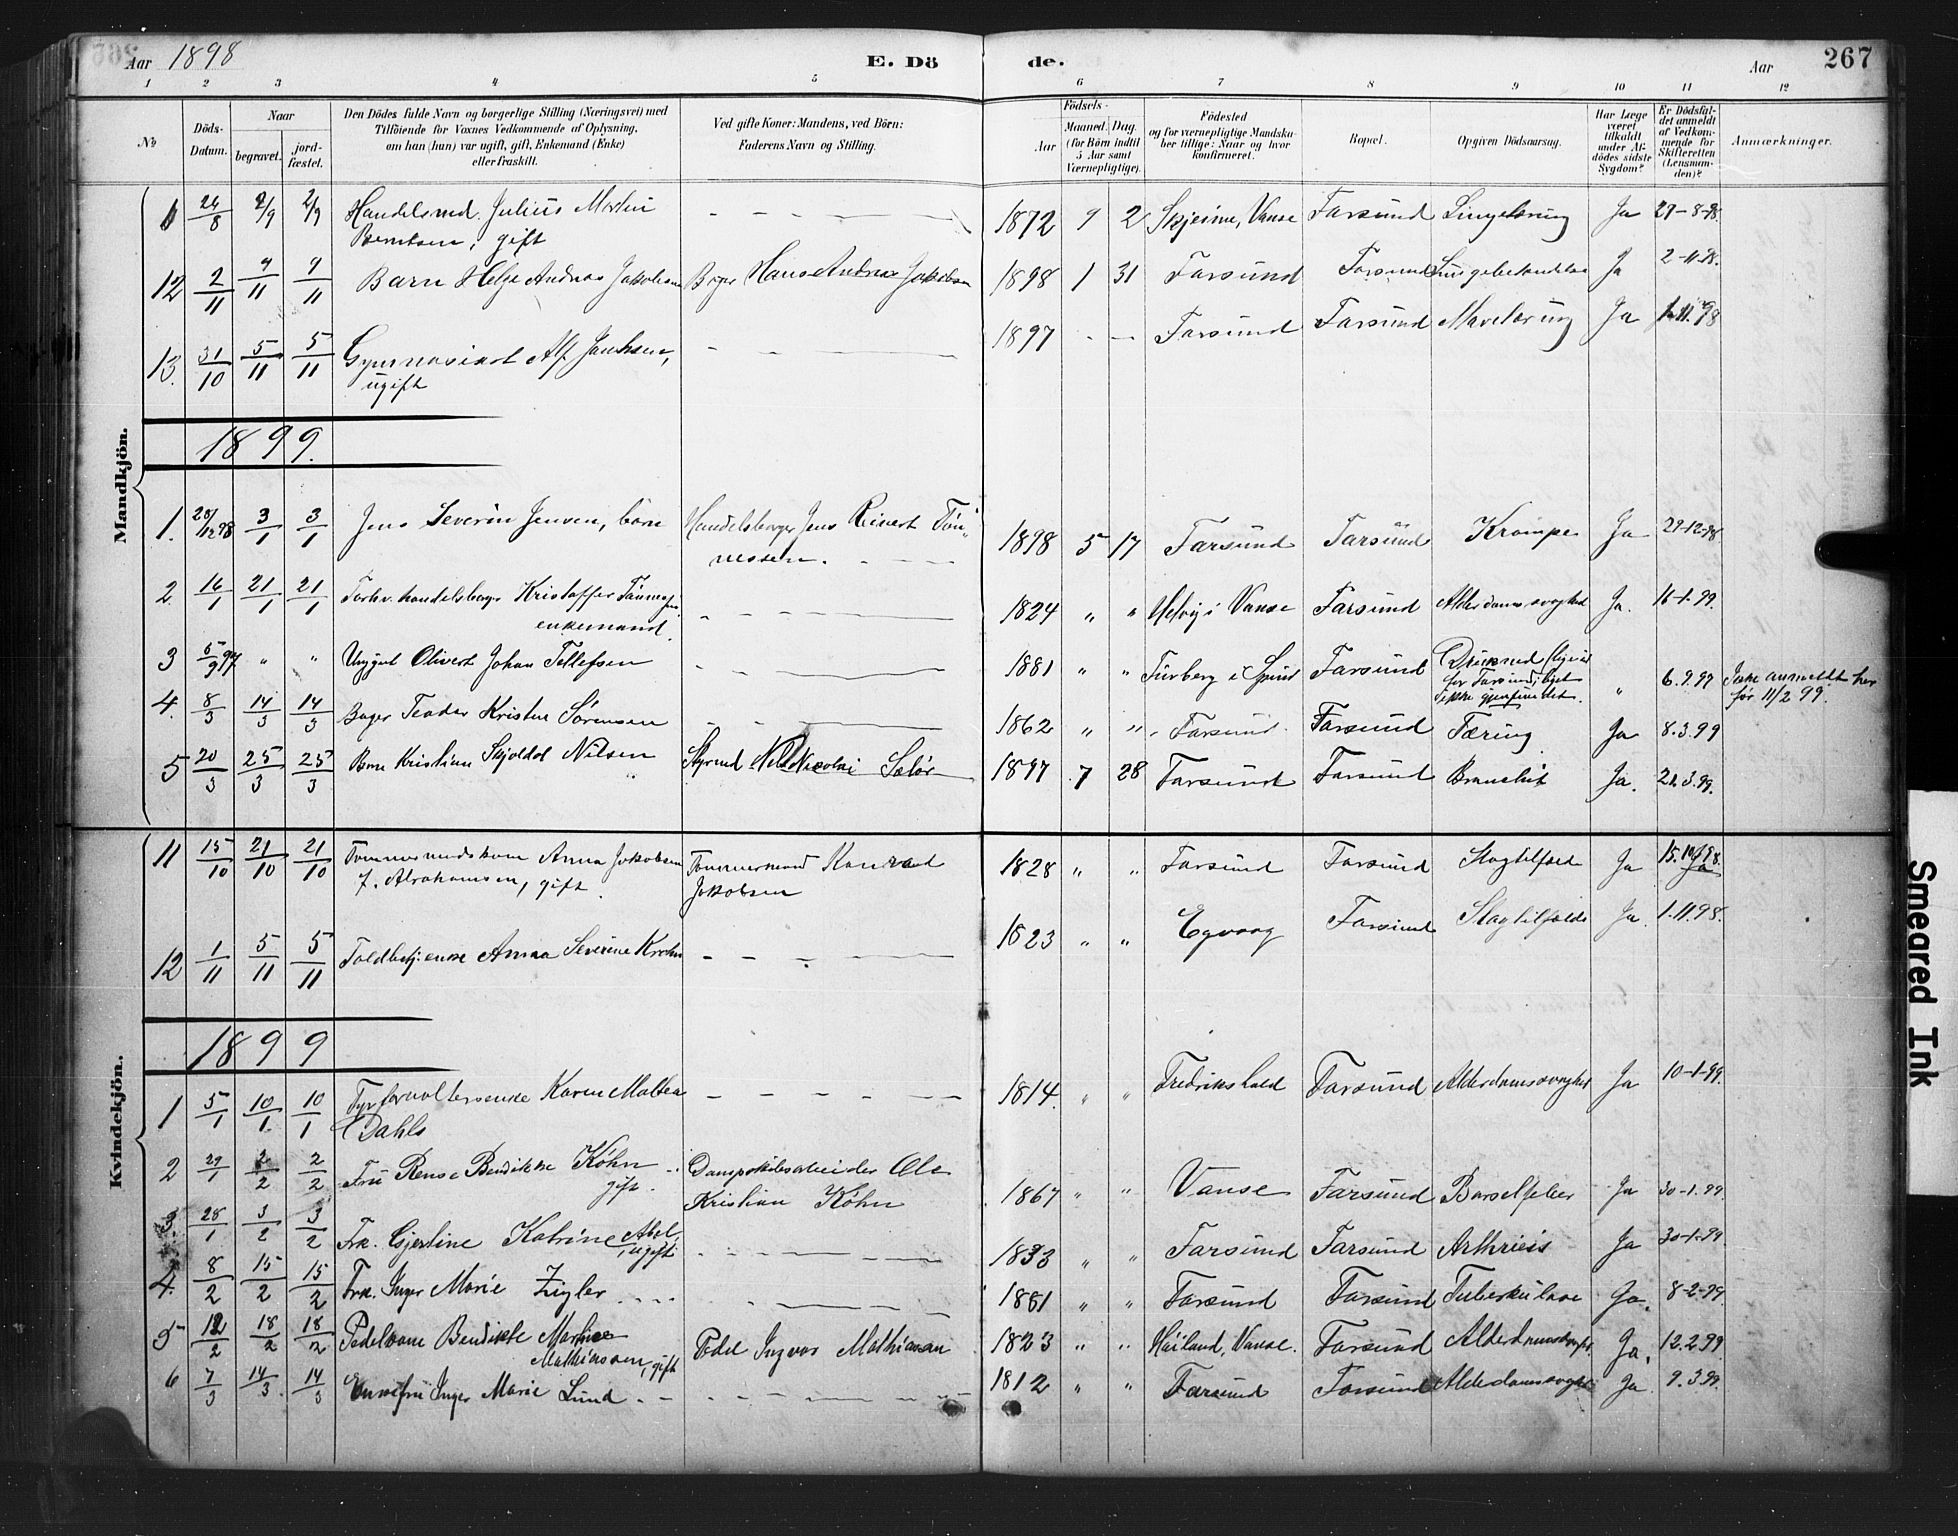 Aar 1898 E. Dö de. Aar 267
1 2 3 4 5 6 7 8 9 10 11 12
No
Döds-Datum.
Naar
begravet.
jord-fæstet.
Den Dödes fulde Navn og borgerlige Stilling (Næringsvei) med
Tilföiende for Voxnes Vedkommende af Oplysning,
om han (hun) var ugift, gift, Enkemand (Enke)
eller fraskilt.
Ved gifte Koner: Mandens, ved Börn:
Faderens Navn og Stilling.
Födsels-
Aar
Maaned. Dag.
(for Börn indtil
5 Aar samt
Værnepligtige).
Födested
og for værnepligtige Mandska-
ber tillige: Naar og hvor
konfirmeret.
Bopæl.
Opgiven Dödsaarsag.
Har Læge
været
tilkaldt
under Af-
dödes sidste
Sygdom?
Er Dödsfal-
det anmeldt
af Vedkom-
mende for
Skifteretten
(Lensman-
den)?
Anmærkninger.
Mandkjön.
26/8 2/9 2/9 Handelsmd. Julius Martin 1872 9 2 Skjeime, Vanse Farsund Ja 27-8-98
Berntsen, gift
12 2/11 9/11 9/11 Barn Helge Andreas Jakobsen Bager Hans Andreas Jakobsen 1898 1 31 Farsund Farsund Ja 2-11-98.
13. 31/10 5/11 5/11 Gymnasiast Alf 1897 - - Farsund Farsund Ja 1-11-98
ugift
1899.
1. 28/12 98 3/1 3/1 Jens Severin Jensen, barn Handelsborger Jens Reinert Tön- 1898 5 17 Farsund Farsund Krampe Ja 29-12-98
nessen.
2. 16/1 21/1 21/1 Forhv. handelsborger Kristoffer Tönnessen 1824 " " Vanse Farsund Alderdomssvaghed Ja. 16-1-99.
enkemand.
3 5/9 97 " " Olivert Johan Tellefsen 1881 " " i Spind Farsund Drukned " 6.9.97 Ikke anmeldt her
for Farsund, liget
ikke gjenfundet.
før 11/2 99.
4. 8/3 14/3 14/3 Bager Teodor Kristen Sörensen 1862 " " Farsund Farsund Tæring Ja 8.3.99
5 20/3 25/3 25/3 Barn Kristian Skjoldol Nilsen Styrmd Nils Nicolai 1897 7 28 Farsund Farsund Ja. 21.3.99.
Kvindekjön.
11 15/10 21/10 21/10 Tømmermandskone Anna Jakobsen Tømmermand Konrad 1828 " " Farsund Farsund Slagtilfæld Ja 15.10.98. Ja
f. Abrahamsen, gift. Jakobsen
12 1/11 5/11 5/11 Toldbetj.enke Anna Severine Krohn 1823 " " Egvaag Farsund Slagtilfælde Ja 1.11.98.
1899
1 5/1 10/1 10/1 Fyrforvalterenke Karen Mathea 1814. " " Fredrikshald Farsund Alderdomssvaghed Ja 10-1-99.
Dahls
2 29/1 2/2 2/2 Fru Bendikke Köhn Dampskibsarbeider Ole 1867 " " Vanse Farsund Barselfeber Ja 30-1-99.
gift. Kristian Köhn
3. 28/1 3/2 3/2 Frk. Gjertine Katrine Abel, 1833 " " Farsund Farsund Ja 30-1-99
ugift
4. 8/2 15/2 15/2 Frk. Inger Marie Zigler 1861 " " Farsund Farsund Tuberkulose Ja. 8-2-99.
5 12/2 18/2 18/2 Pedelkone Bendikte Pedel Ingvar Mathiassen 1823 " " Vanse. Farsund Alderdomssvagh. Ja. 12.2.99
Mathiassen, gift
6 7/3 14/3 14/3 Enkefru Inger Marie Lund 1812 " " Farsund Farsund Alderdomssvaghed Ja 9.3.99.
Smeared Ink